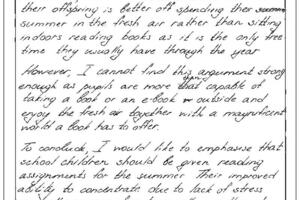 their offspring is better off spending their
summer in the fresh air rather than sitting
indoors reading books as it is the only free
time they usually have through the year
However, I cannot find this argument strong
enough as pupils are more than capable of
taking a book or an e-book outside and
enjoy the fresh air together with a magnificent
world a book has to offer.
To conclude, I would like to emphasise that
school children should be given reading
assignments for the summer. Their improved
ability to concentrate due to lack of stress